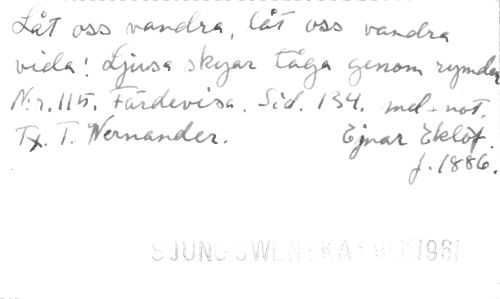 Låt oss vandra, låt oss vandra
vida! Ljusa skyar tåga genom rymden
N:r. 115. Färdevisa. Sid. 134. mel. + not.
Tx. T. Nernander. Ejnar Eklöf.
f. 1886.
SJUNG SVENSKA FOLK 1961